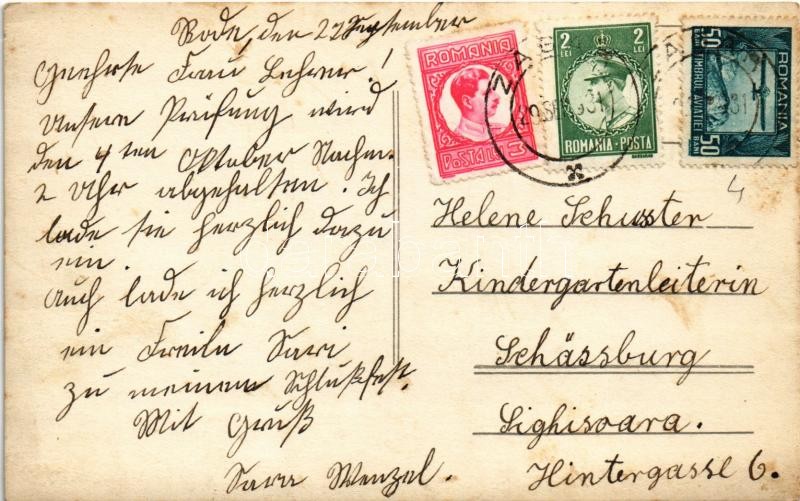 Rode, den 22 September
Geehrte Frau Lehrer!
Unsere Prüfung wird
den 4 ten Oktober Nachm.
2 Uhr abgehalten. Ich
lade sie herzlich dazu
ein.
Auch lade ich herzlich
ein Freiln Sari
zu meinem Schlußfest.
Mit Gruß
Sara Wenzel.
ROMANIA
POSTALUI 3
2 LEI 2 LEI
ROMANIA-POSTA
50 BANI TIMBRUL AVIATIEI 50 BANI
ROMANIA
4
Helene Schuster
Kindergartenleiterin
Schässburg
Sighisoara.
Hintergasse 6.